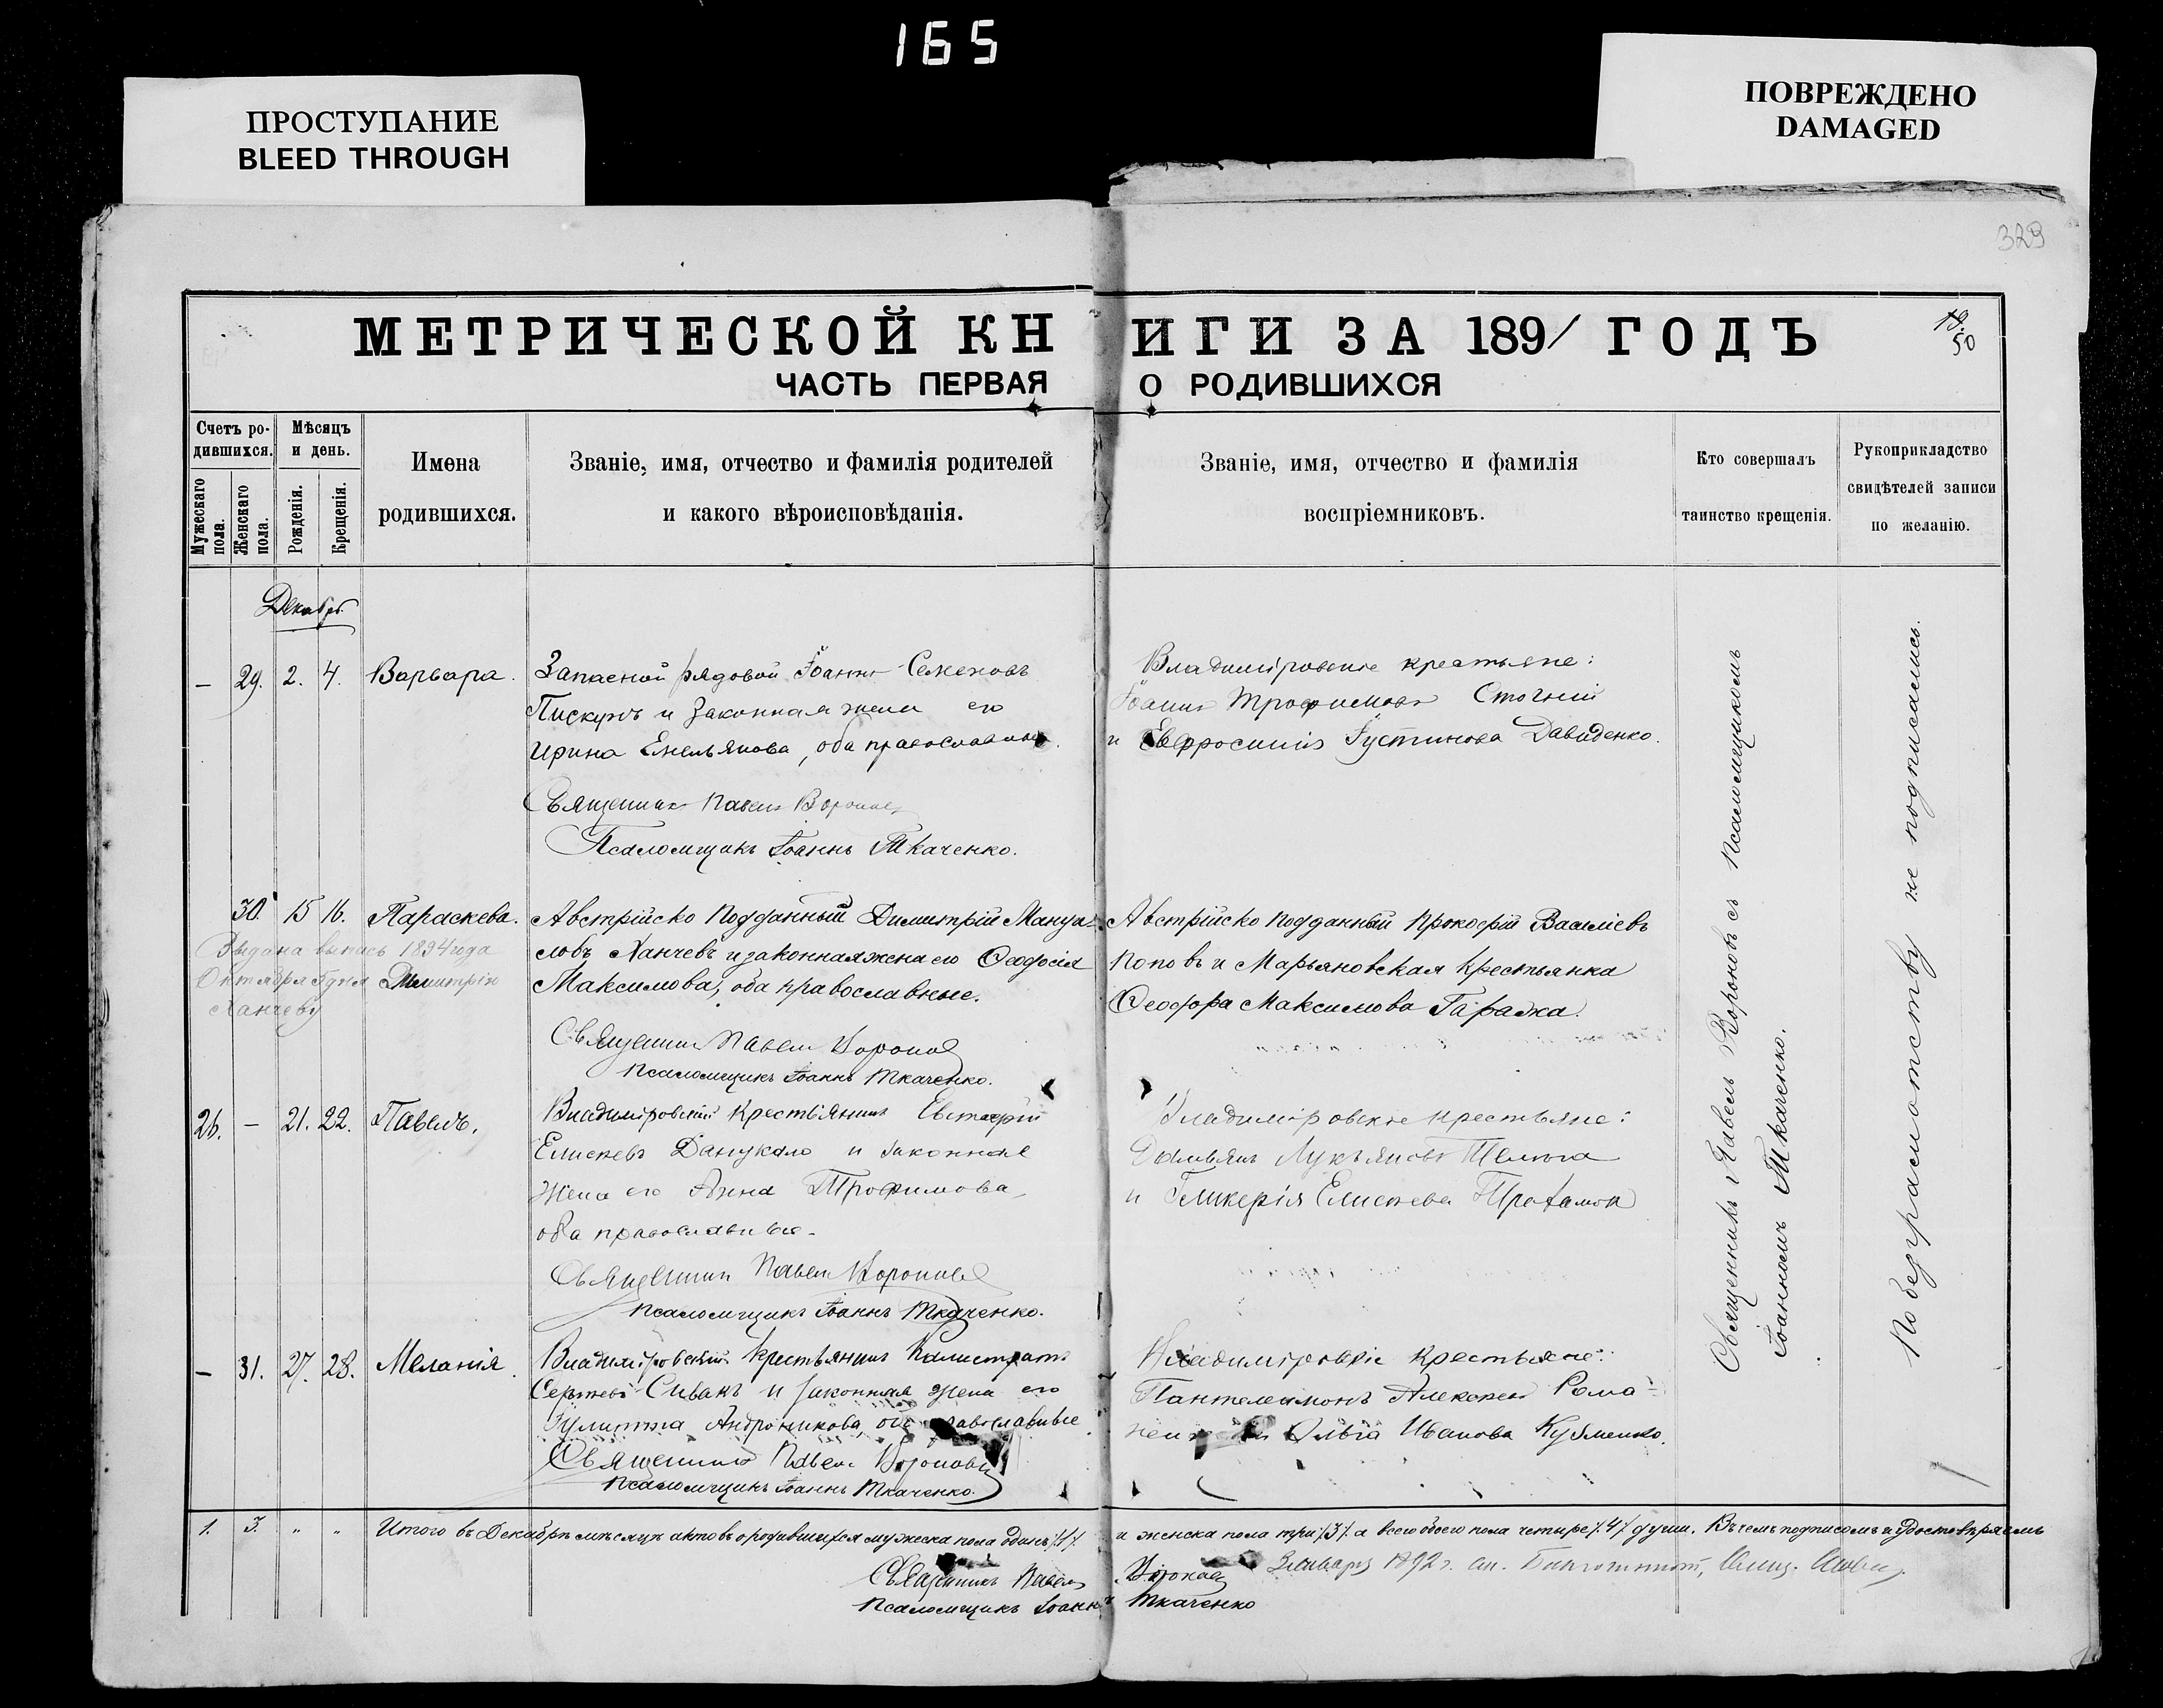 165
ПРОСТУПАНИЕ
BLEED THROUGH
ПОВРЕЖДЕНО
DAMAGED
329
МЕТРИЧЕСКОЙ КНИГИ ЗА 1891 ГОДЪ
50
ЧАСТЬ ПЕРВАЯ О РОДИВШИХСЯ
Счетъ ро-
дившихся.
Мужескаго пола.
Женскаго пола.
Мѣсяцъ
и день.
Рожденія.
Крещенія.
Имена
родившихся.
Званіе, имя, отчество и фамилія родителей
и какого вѣроисповѣданія.
Званіе, имя, отчество и фамилія
воспріемниковъ.
Кто совершалъ
таинство крещенія.
Рукоприкладство
свидѣтелей записи
по желанію.
Декабрь
– 29. 2. 4. Варвара.
Запасной рядовой Іоаннъ Семеновъ
Пискунъ и законная жена его
Ирина Емельянова, оба православные.
Священникъ Павелъ Вороновъ
Псаломщикъ Іоаннъ Ткаченко.
Владимировскіе крестьяне:
Іоаннъ Трофимовъ Стогній
и Евфросинія Іустинова Давиденко.
30 15 16. Параскева.
Австрійско подданный Димитрій Мануи-
ловъ Ханчевъ и законная жена его Феодосія
Максимова, оба православные.
Священникъ Павелъ Вороновъ
Псаломщикъ Іоаннъ Ткаченко.
Австрійско подданный Прокофій Василіевъ
Поповъ и Марьяновская крестьянка
Феодора Максимова Гаража.
Выдана выпись 1894 года
Октября дня Димитрію
Ханчеву
26. – 21. 22. Павелъ.
Владиміровскій крестьянинъ Евстафій
Елисеевъ Данукало и законная
жена его Анна Трофимова,
оба православные.
Священникъ Павелъ Вороновъ
Псаломщикъ Іоаннъ Ткаченко.
Владиміровскіе крестьяне:
Лукьяновъ
и Гликерія Елисеева
– 31. 27. 28. Меланія.
Владиміровскій крестьянинъ Калистратъ
Сергѣевъ Сивакъ и законная жена его
Іулитта Андроникова, оба православные.
Священникъ Павелъ Вороновъ
Псаломщикъ Іоаннъ Ткаченко.
Владиміровскіе крестьяне:
Пантелеимонъ Алексѣевъ Рома-
Ольга Иванова Кузменко.
Священникъ Павелъ Вороновъ съ псаломщикомъ
Іоанномъ Ткаченко.
По безграмотству не подписались.
1. 3. " " Итого въ Декабрѣ мѣсяцѣ актовъ о родившихся мужеска пола одинъ /1/ и женска пола три /3/ а всего обоего пола четыре /4/ души. Въ чемъ подписомъ и удостовѣряемъ
Священникъ Павелъ Вороновъ
Января 1892 г.
Псаломщикъ Іоаннъ Ткаченко